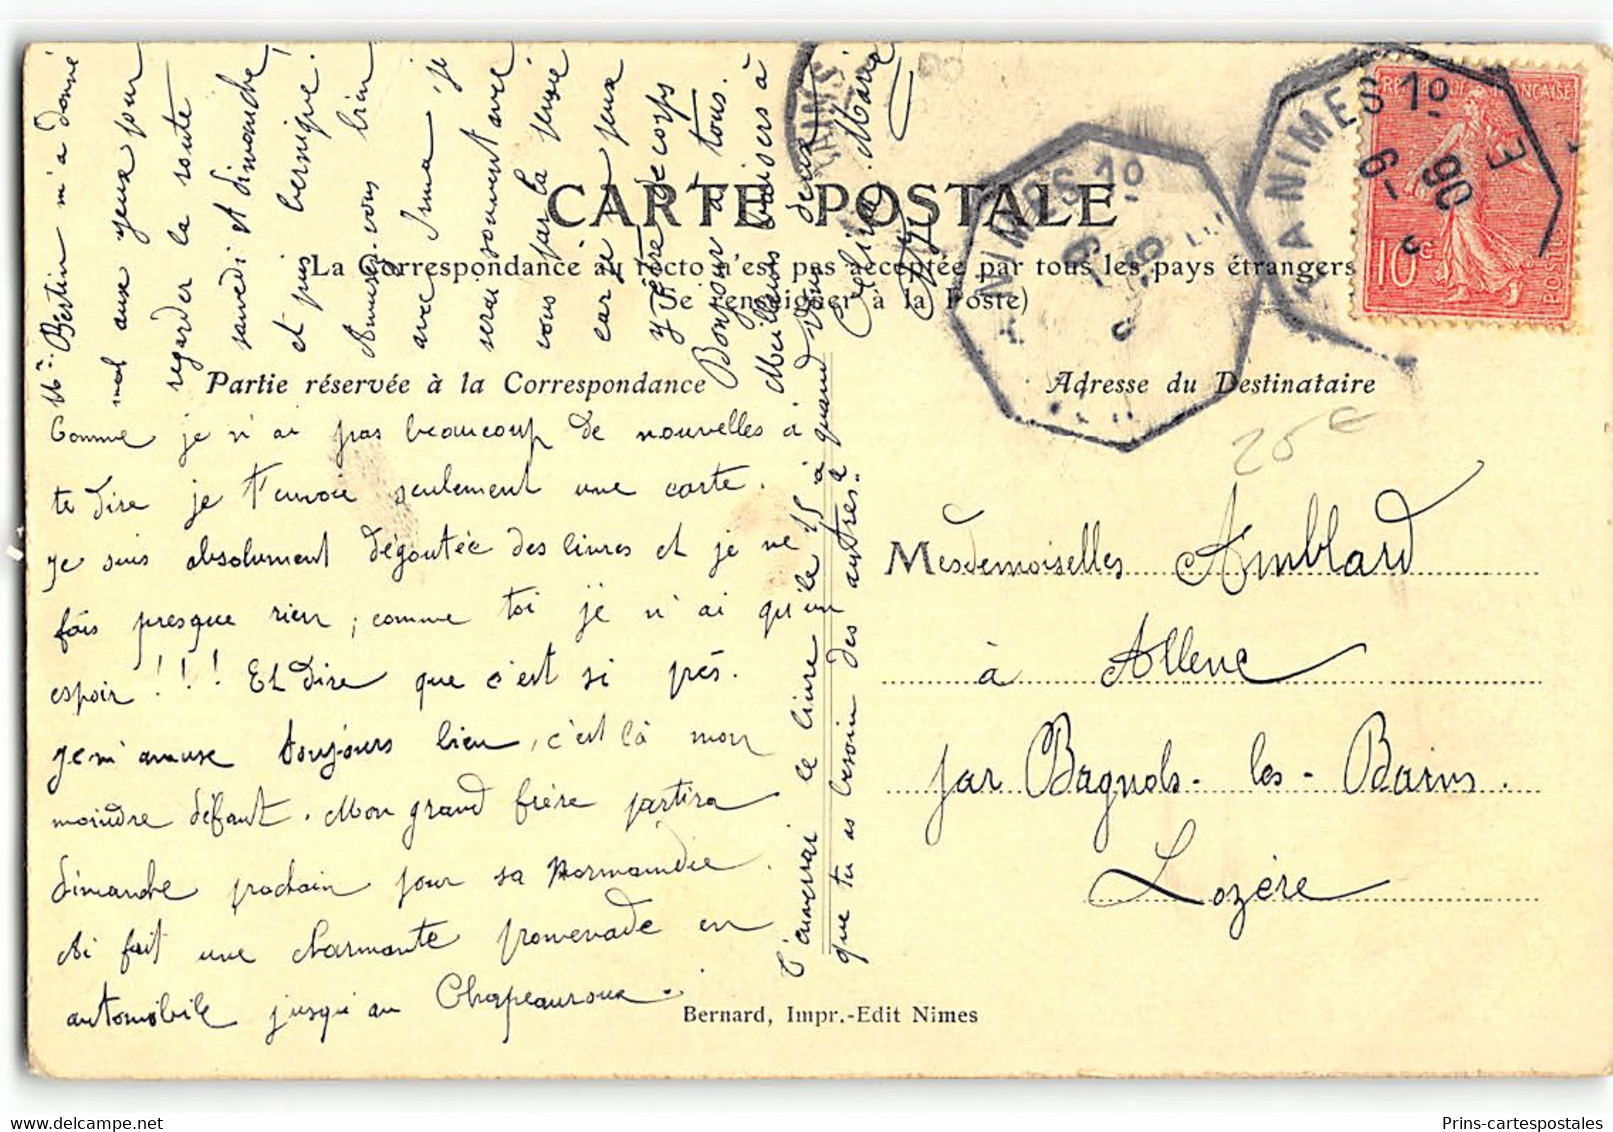 CARTE POSTALE
La Correspondance au recto n'est pas acceptée par tous les pays étrangers
(Se renseigner à la Poste)
Partie réservée à la Correspondance
Adresse du Destinataire
Comme je n'ai pas beaucoup de nouvelles à
te dire je t'envoie seulement une carte.
Je suis absolument dégoutée des livres et je ne
fais presque rien, comme toi je n'ai qu'un
espoir!!! Et dire que c'est si près.
Je m'amuse toujours bien, c'est là mon
moindre défaut. Mon grand frère partira
dimanche prochain pour sa Normandie.
Ai fait une charmante promenade en
automobile jusqu'au Chapeauroux.
T'enverrai le livre le 15 à quand
que tu as besoin des autres?
Mlle Bertin m'a donné
mal aux yeux pour
regarder la route
samedi et dimanche
et puis bernique!
Amusez-vous bien
avec Irma, je
serai souvent avec
vous par la pensée
car je ne peux
y être de corps
Bonjour à tous.
Meilleurs baisers à
vous deux
Marie
Mesdemoiselles Amblard
à Allenc
par Bagnols-les-Bains.
Lozère
25 €
REPUBLIQUE FRANÇAISE
10c
POSTES
A NIMES 1°
6-9
06
E
A NIMES 1°
6-9
NIMES
Bernard, Impr.-Edit Nimes
delcampe.net
Prins-cartespostales